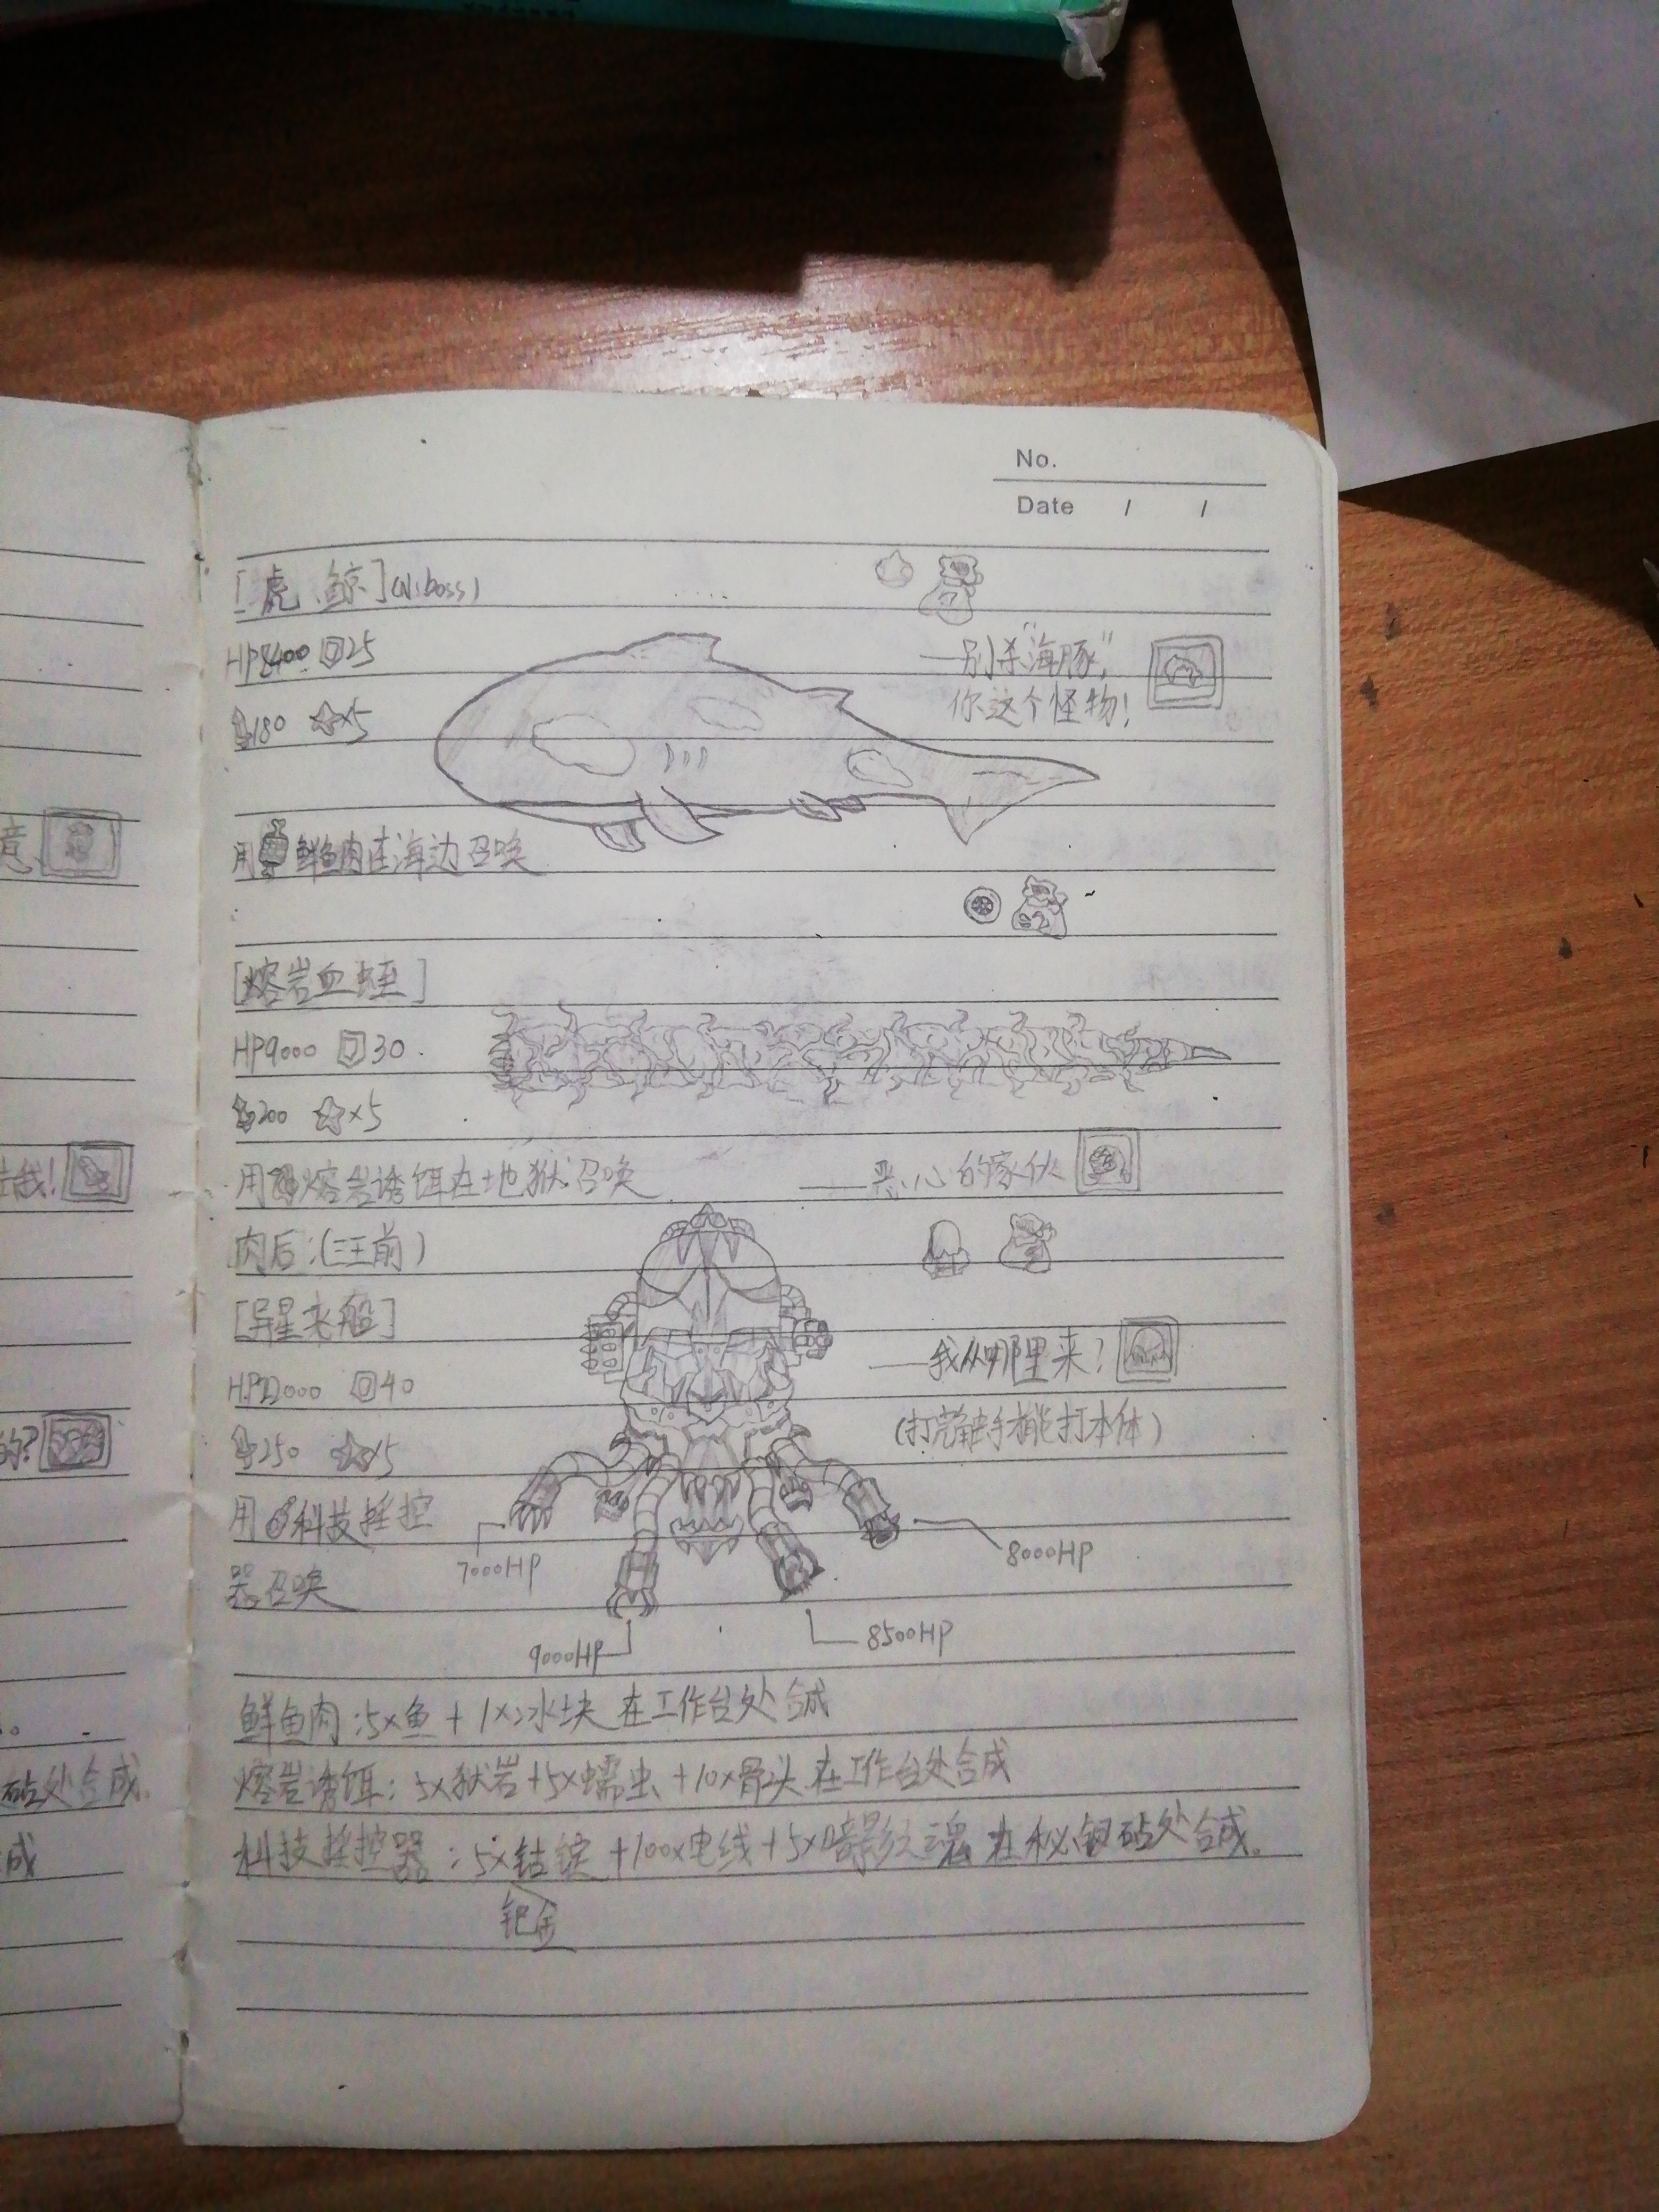 No.
Date / /
[虎鲸](小boss)
HP8400 25
180 ×5
——别杀"海豚",
你这个怪物!
用鲜鱼肉在海边召唤
[熔岩血蛭]
HP9000 30
200 ×5
用熔岩诱饵在地狱召唤
——恶心的家伙
肉后:(三王前)
[异星来船]
HP22000 40
250 ×5
——我从哪里来?
(打完触手才能打本体)
用科技摇控
器召唤
7000HP
8000HP
9000HP
8500HP
鲜鱼肉:5×鱼+1×冰块在工作台处合成
熔岩诱饵:5×狱岩+5×蠕虫+10×骨头在工作台处合成
科技摇控器:5×钴锭+100×电线+5×暗影之魂在秘银砧处合成。
钯金
意
我!
的?
砧处合成。
成